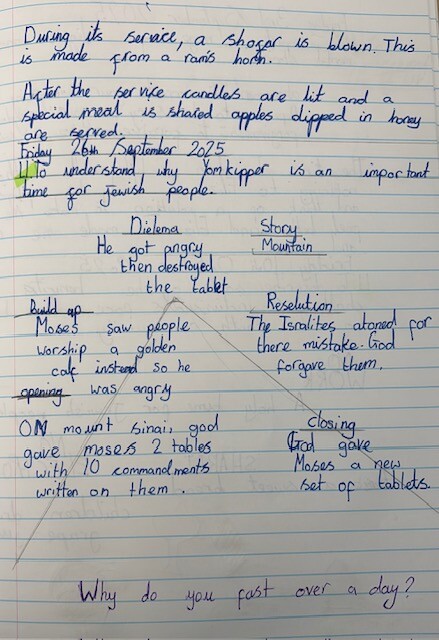 During its service, a shofar is blown. This
is made from a ram's horn.
After the service candles are lit and a
special meal is shared apples dipped in honey
are served.
Friday 26th September 2025
LI To understand why Yom kipper is an important
time for Jewish people.
Dielema
He got angry
then destroyed
the tablet
Story
Mountain
Build up
Moses saw people
worship a golden
calf instead so he
was angry
Resolution
The Isralites atoned for
there mistake. God
forgave them.
opening
ON mount sinai, god
gave moses 2 tables
with 10 commandments
written on them.
closing
God gave
Moses a new
set of tablets.
Why do you fast over a day?